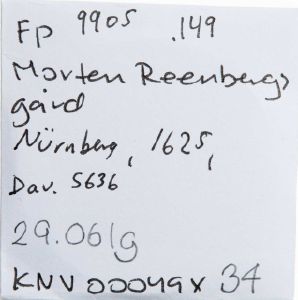 FP 9905 .149
Morten Reenbergs
gård
Nürnberg, 1625,
Dav. 5636
29.061g
KNV00049x 34